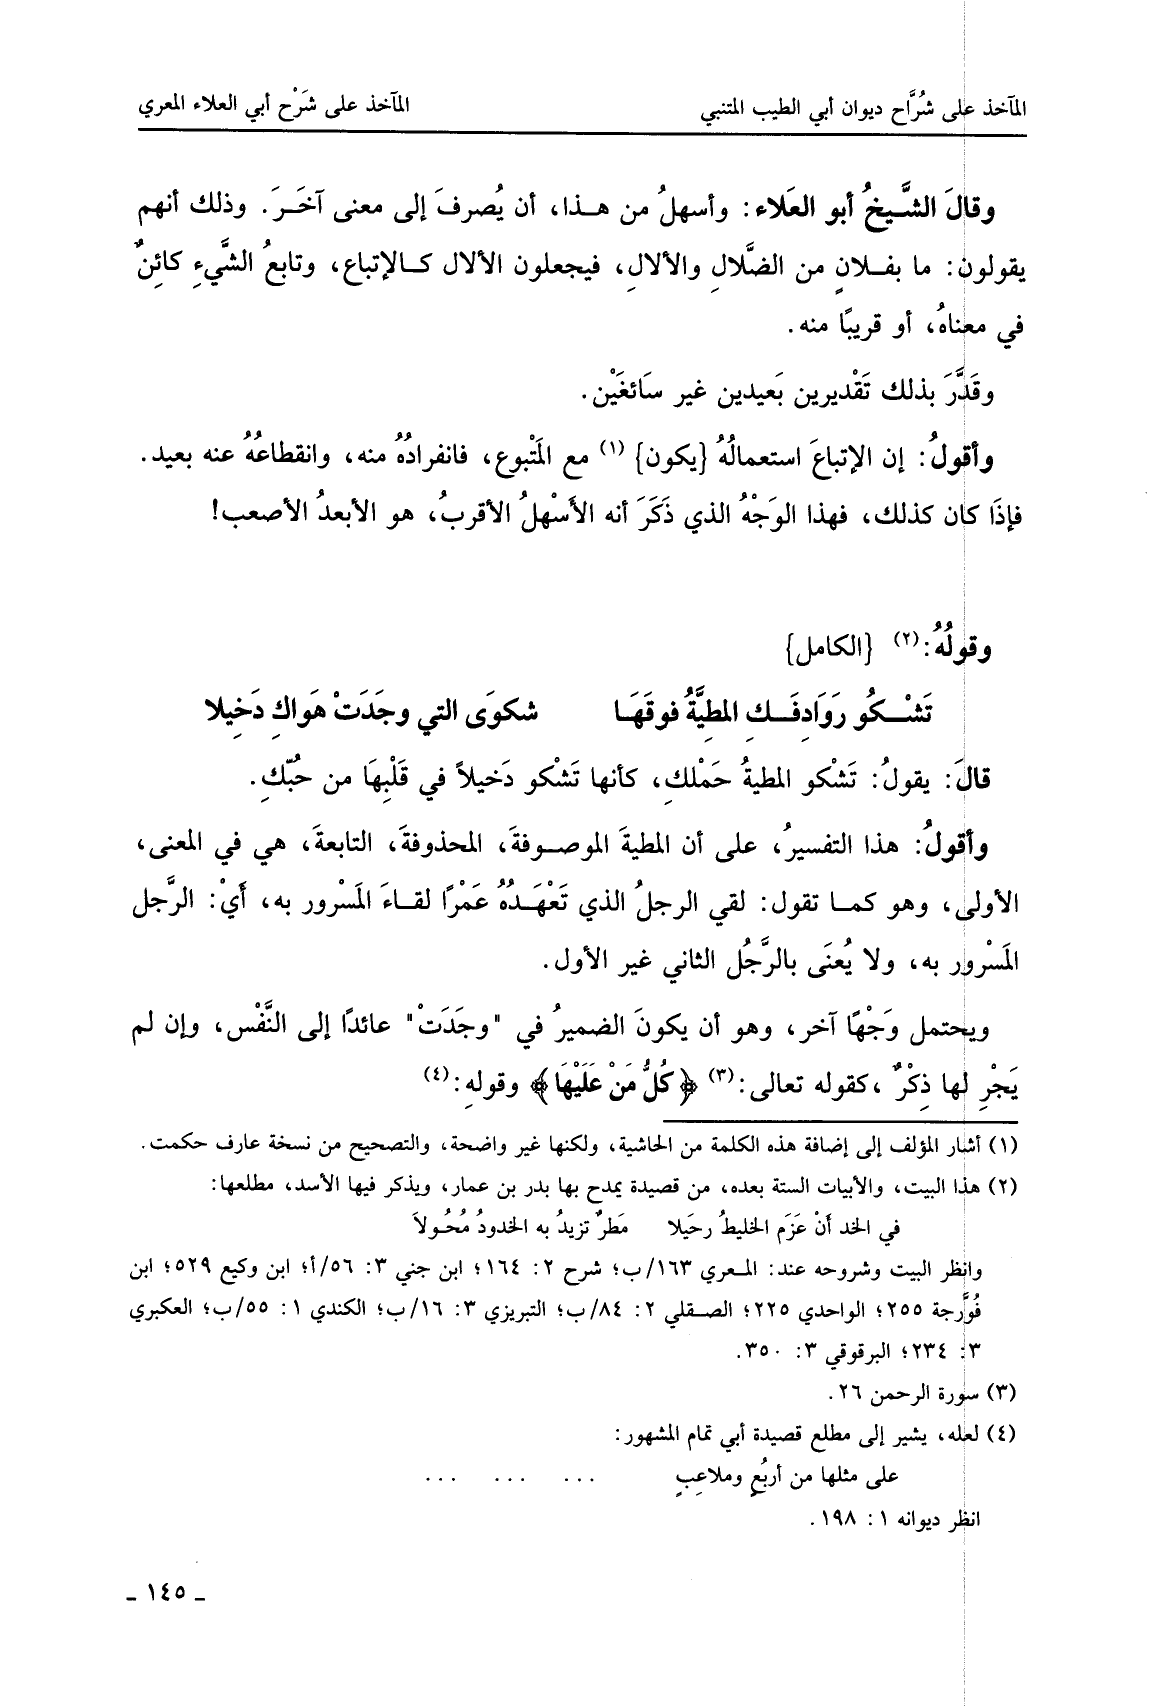 المآخذ على شُرَّاح ديوان أبي الطيب المتنبي المآخذ على شَرْح أبي العلاء المعري
وقالَ الشَّيخُ أبو العَلاء: وأسهلُ من هذا، أن يُصرفَ إلى معنى آخَرَ. وذلك أنهم
يقولون: ما بفلانٍ من الضَّلالِ والألالِ، فيجعلون الألال كالإتباع، وتابعُ الشَّيءِ كائنٌ
في معناهُ، أو قريبًا منه.
وقَدَّرَ بذلك تَقْديرين بَعيدين غير سَائغَيْن.
وأقولُ: إن الإتباعَ استعمالُهُ {يكون} (١) مع المَتْبوع، فانفرادُهُ منه، وانقطاعُهُ عنه بعيد.
فإذَا كان كذلك، فهذا الوَجْهُ الذي ذَكَرَ أنه الأَسْهلُ الأقربُ، هو الأبعدُ الأصعب!
وقولُهُ:(٢) {الكامل}
تَشْكُو رَوَادِفَكِ المطِيَّةُ فوقَهَا شكوَى التي وجَدَتْ هَواكِ دَخِيلا
قالَ: يقولُ: تَشْكو المطيةُ حَمْلكِ، كأنها تَشْكو دَخيلاً في قَلْبِهَا من حُبّكِ.
وأقولُ: هذا التفسيرُ، على أن المطيةَ الموصوفةَ، المحذوفةَ، التابعةَ، هي في المعنى،
الأولى، وهو كما تقول: لقي الرجلُ الذي تَعْهَدُهُ عَمْرًا لقاءَ المَسْرور به، أَيْ: الرَّجل
المَسْرور به، ولا يُعنَى بالرَّجُل الثاني غير الأول.
ويحتمل وَجْهًا آخر، وهو أن يكونَ الضميرُ في "وجَدَتْ" عائدًا إلى النَّفْس، وإن لم
يَجْرِ لها ذِكْرٌ ،كقوله تعالى:(٣) ﴿كُلُّ مَنْ عَلَيْهَا﴾ وقولهِ:(٤)
(١) أشار المؤلف إلى إضافة هذه الكلمة من الحاشية، ولكنها غير واضحة، والتصحيح من نسخة عارف حكمت.
(٢) هذا البيت، والأبيات الستة بعده، من قصيدة يمدح بها بدر بن عمار، ويذكر فيها الأسد، مطلعها:
في الخد أنْ عَزَم الخليطُ رحَيلا مَطرٌ تزيدُ به الخدودُ مُحُولاَ
وانظر البيت وشروحه عند: المعري ١٦٣/ب؛ شرح ٢: ١٦٤؛ ابن جني ٣: ٥٦/أ؛ ابن وكيع ٥٢٩؛ ابن
فُورَّجة ٢٥٥؛ الواحدي ٢٢٥؛ الصقلي ٢: ٨٤/ب؛ التبريزي ٣: ١٦/ب؛ الكندي ١: ٥٥/ب؛ العكبري
٣: ٢٣٤؛ البرقوقي ٣: ٣٥٠.
(٣) سورة الرحمن ٢٦.
(٤) لعله، يشير إلى مطلع قصيدة أبي تمام المشهور:
على مثلها من أربُعٍ وملاعِبٍ ... ... ...
انظر ديوانه ١: ١٩٨.
ـ ١٤٥ ـ